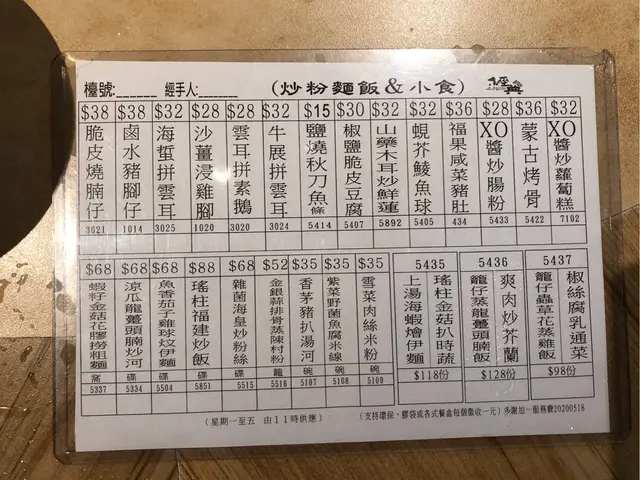 檯號:______ 經手人:______ (炒粉麵飯&小食) 經典
$38 脆皮燒腩仔 3021
$38 鹵水豬腳仔 1014
$32 海蜇拼雲耳 3025
$28 沙薑浸雞腳 1020
$28 雲耳拼素鵝 3020
$32 牛展拼雲耳 3024
$15 鹽燒秋刀魚 條 5414
$30 椒鹽脆皮豆腐 5407
$32 山藥木耳炒鮮蓮 5892
$32 蜆芥鯪魚球 5405
$36 福果咸菜豬肚 434
$28 XO醬炒腸粉 5433
$36 蒙古烤骨 5422
$32 XO醬炒蘿蔔糕 7102
$68 蝦籽金菇花膠撈粗麵 窩 5337
$68 涼瓜龍躉頭腩炒河 碟 5334
$68 魚香茄子雞球炆伊麵 碟 5504
$88 瑤柱福建炒飯 碟 5851
$68 雜菌海皇炒粉絲 碟 5515
$52 金銀蒜排骨蒸陳村粉 籠 5516
$35 香茅豬扒湯河 碗 5107
$35 紫菜野菌魚腐米線 碗 5108
$35 雪菜肉絲米粉 碗 5109
5435
瑤柱金菇扒時蔬
上湯海蝦燴伊麵
$118份
5436
爽肉炒芥蘭
籠仔蒸龍躉頭腩飯
$128份
5437
椒絲腐乳通菜
籠仔蟲草花蒸雞飯
$98份
(星期一至五 由11時供應)
(支持環保,膠袋或各式餐盒每個徵收一元) 多謝加一服務費20200518